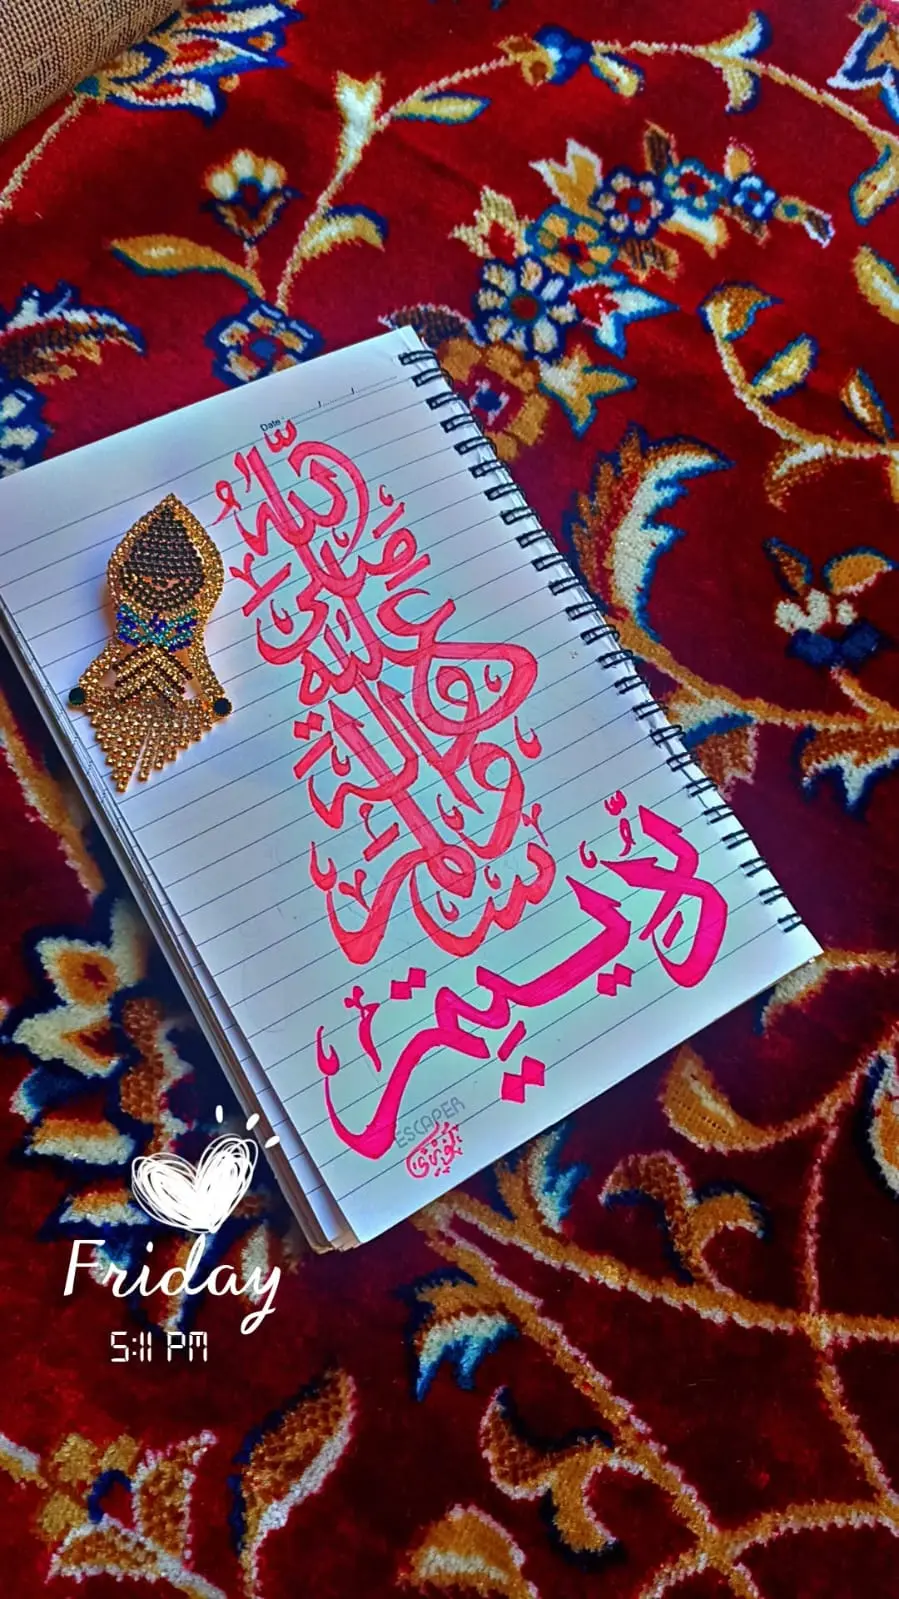 Date : ....... / ....... / .......
صَلَى اللّٰهُ
عليه
واله
وسلم
ESCAPER
Friday
5:11 PM